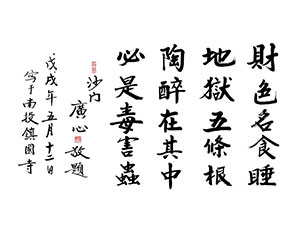 財色名食睡
地獄五條根
陶醉在其中
必是毒害蟲
沙門 廣心 敬題
戊戌年五月十二日
寫于南投鎮國寺